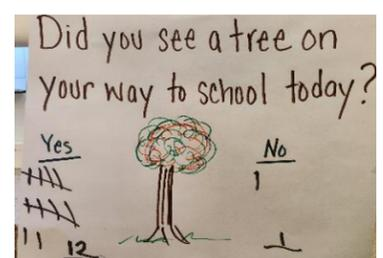 Did you see a tree on
your way to school today?
Yes
No
12
1